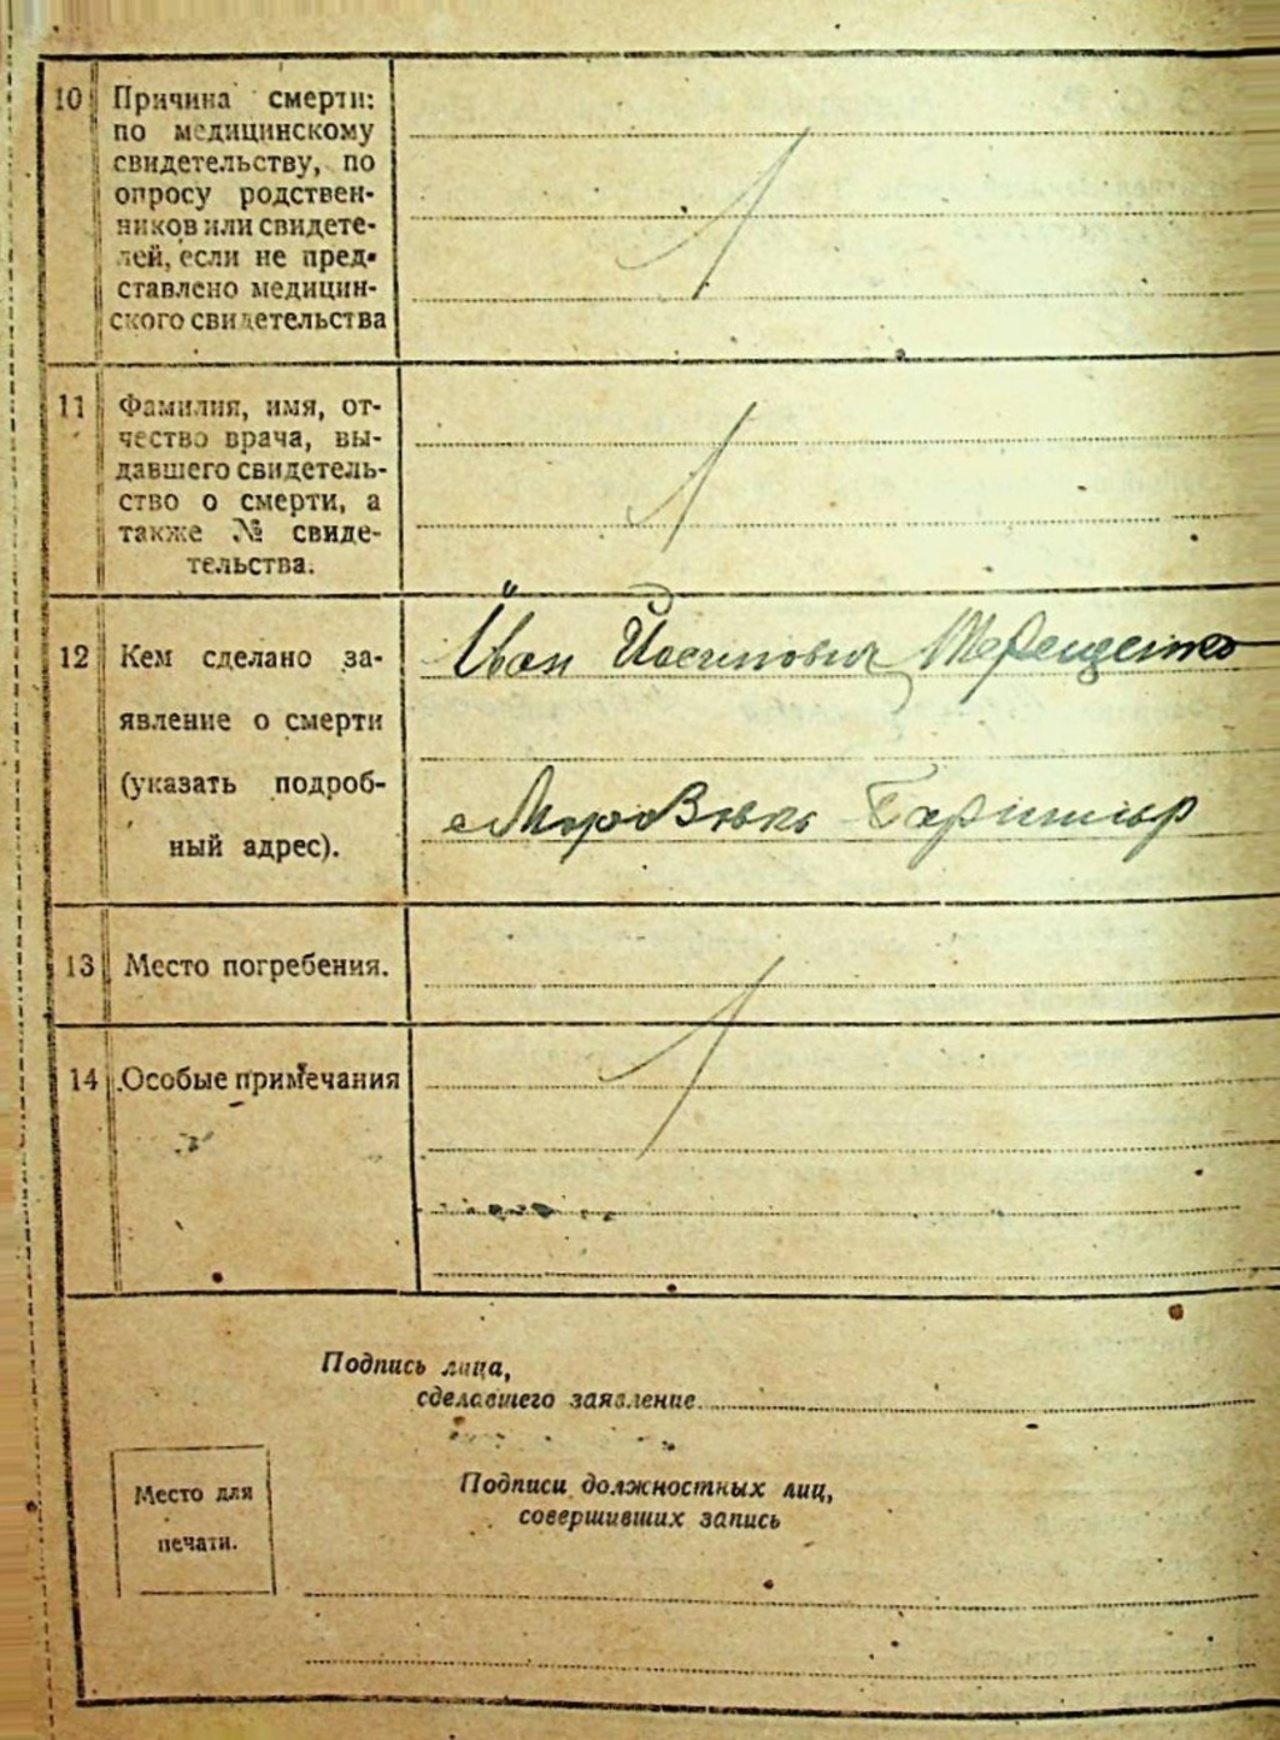 10 Причина смерти:
по медицинскому
свидетельству, по
опросу родствен-
ников или свидете-
лей, если не пред-
ставлено медицин-
ского свидетельства
11 Фамилия, имя, от-
чество врача, вы-
давшего свидетель-
ство о смерти, а
также № свиде-
тельства.
12 Кем сделано за-
явление о смерти
(указать подроб-
ный адрес).
Иван Иосипович Терещенко
13 Место погребения.
14 Особые примечания
Подпись лица,
сделавшего заявление
Место для
печати.
Подписи должностных лиц,
совершивших запись